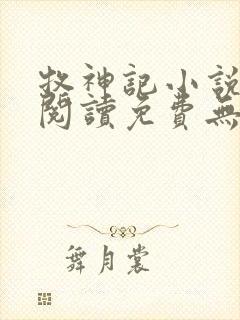 牧神記小說
閱讀免費無
舞月裳